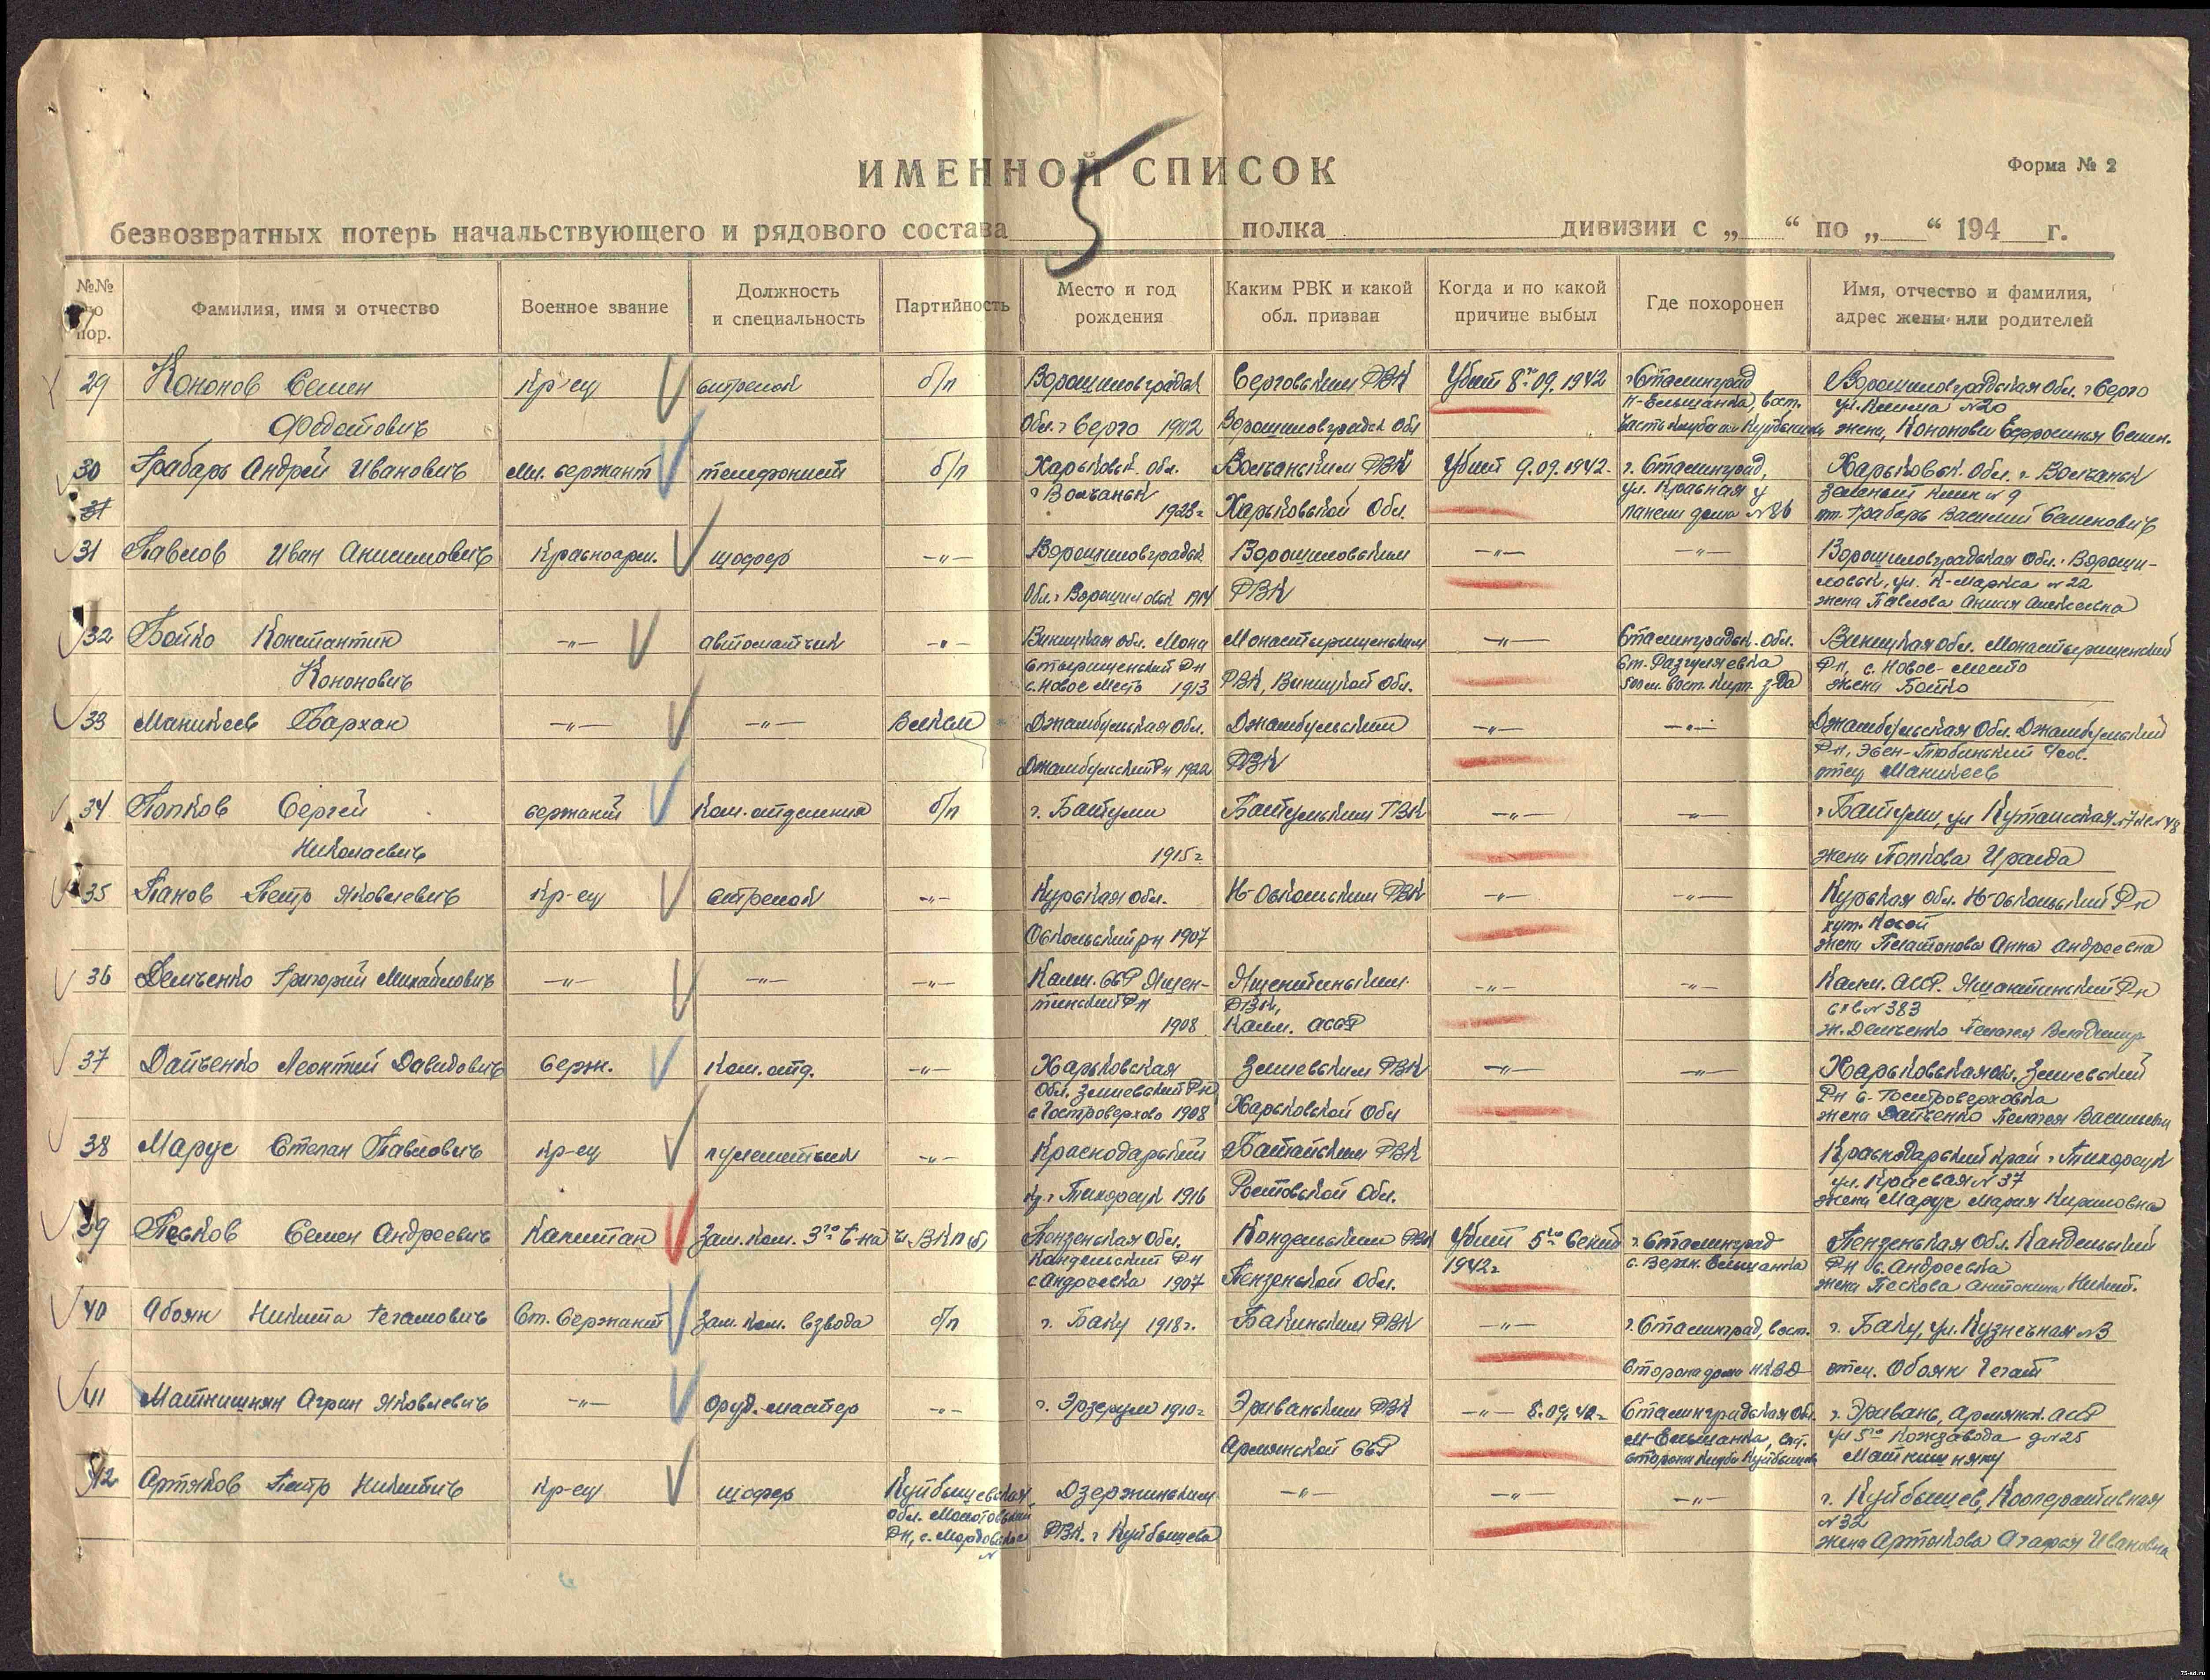 5
ИМЕННОЙ СПИСОК
Форма № 2
безвозвратных потерь начальствующего и рядового состава полка дивизии с „ “ по „ “ 194 г.
№№ по пор.
Фамилия, имя и отчество
Военное звание
Должность и специальность
Партийность
Место и год рождения
Каким РВК и какой обл. призван
Когда и по какой причине выбыл
Где похоронен
Имя, отчество и фамилия, адрес жены или родителей
29 Кононов Семен кр-ец стрелок б/п Ворошиловградск Серговским РВК Убит 8го 09. 1942 г Сталинград Ворошиловградская Обл. г Серго
Н-Ельшанка, вост. ул. Клима №20
Федотович Обл. г Серго 1902 Ворошиловградск Обл часть клуба им Куйбышева жена, Кононова Ефросинья Семен.
30 Грабарь Андрей Иванович Мл. сержант телефонист б/п Харьковск. Обл. Волчанским РВК Убит 9.09.1942. г. Сталинград, Харьковск. Обл. г Волчанск
г Волчанск ул. Красная у №9
31 1923г Харьковской Обл. панели дома №86 от. Грабарь Василий Семенович
31 Павлов Иван Анисимович Красноарм. шофер -"- Ворошиловградск Ворошиловским -"- -"- Ворошиловградская Обл. г Вороши-
ловск, ул. К-Маркса №22
Обл. г Ворошиловск 1914 РВК жена Павлова Анисья Алексеевна
32 Бойко Константин -"- автоматчик -"- Виницкая обл. Мона Монастырищенским -"- Сталинградск. Обл. Виницкая обл. Монастырищенский
стырищенский Рн Ст. Разгуляевка Рн, с. Новое-Место
Кононович с. Новое Место 1913 РВК, Виницкой Обл. 500м. вост. кирп. з-да жена Бойко
33 Маникеев Бархан -"- -"- Влксм Джамбульская Обл. Джамбульским -"- -"- Джамбульская Обл. Джамбульский
Рн,
Джамбульский Рн 1922 РВК отец Маникеев
34 Попков Сергей сержант Ком. отделения б/п г. Батуми Батумским ГВК -"- -"- г Батуми, ул Кутаисская
Николаевич 1915г жена Попкова Ираида
35 Панов Петр Яковлевич кр-ец стрелок -"- Курская обл. Н-Оскольским РВК -"- -"- Курская Обл. Н-Оскольский Рн
хут. Косой
Оскольский рн 1907 жена Анна Андреевна
36 Демченко Григорий Михайлович -"- -"- -"- Калм. ССР Яшен- -"- -"- Калм. АССР.
тинский Рн РВК, №383
1908 Калм. АССР ж. Демченко Пелагея Владимир.
37 Дайченко Леонтий Давидович серж. Ком. отд. -"- Харьковская Змиевским РВК -"- -"- Харьковская обл, Змиевский
Обл, Змиевский Рн Рн с. Гостроверховка
с Гостроверхово 1908 Харьковской Обл жена Дайченко Пелагея Васильевн
38 Марус Степан Павлович кр-ец пулеметчик -"- Краснодарский Батайским РВК Краснодарский Край г Тихорецк
ул. Краевая №37
кр. г Тихорецк 1916 Ростовской Обл. жена Марус Мария Кириловна
39 Песков Семен Андреевич Капитан Зам. ком. 3го б-на чл ВКП(б) Пензенская Обл. Кондольским РВК Убит 5го Сент г. Сталинград Пензенская Обл. Кандольский
Кандольский Рн 1942г с. Верхн. Ельшанка Рн с. Андреевка
с Андреевка 1907 Пензенской Обл. жена Пескова Антонина Никит.
40 Абоян Никита Гегамович Ст. Сержант Зам. ком. взвода б/п г. Баку 1918г. Бакинским РВК -"- г. Сталинград, вост. г. Баку, ул. Кузнечная №3
сторона дома НКВД отец. Обоян Гегам
41 Маткишнян Агрин Яковлевич -"- Оруд. мастер -"- г. Эрзерум 1910г Эриванским РВК -"- 8.09.42г Сталинградская Обл. г. Эривань, Армянск. АССР
М-Ельшанка, вост. ул 5го Кожзавода д№25
Армянской ССР сторона клуба Куйбышев
42 Артяков Петр Никитич кр-ец шофер Куйбышевская Дзержинским -"- -"- -"- г. Куйбышев, Кооперативная
Обл. Молотовский №32
Рн, с. Мордовское РВК. г Куйбышева жена Артякова Агафья Ивановна
75-sd.ru